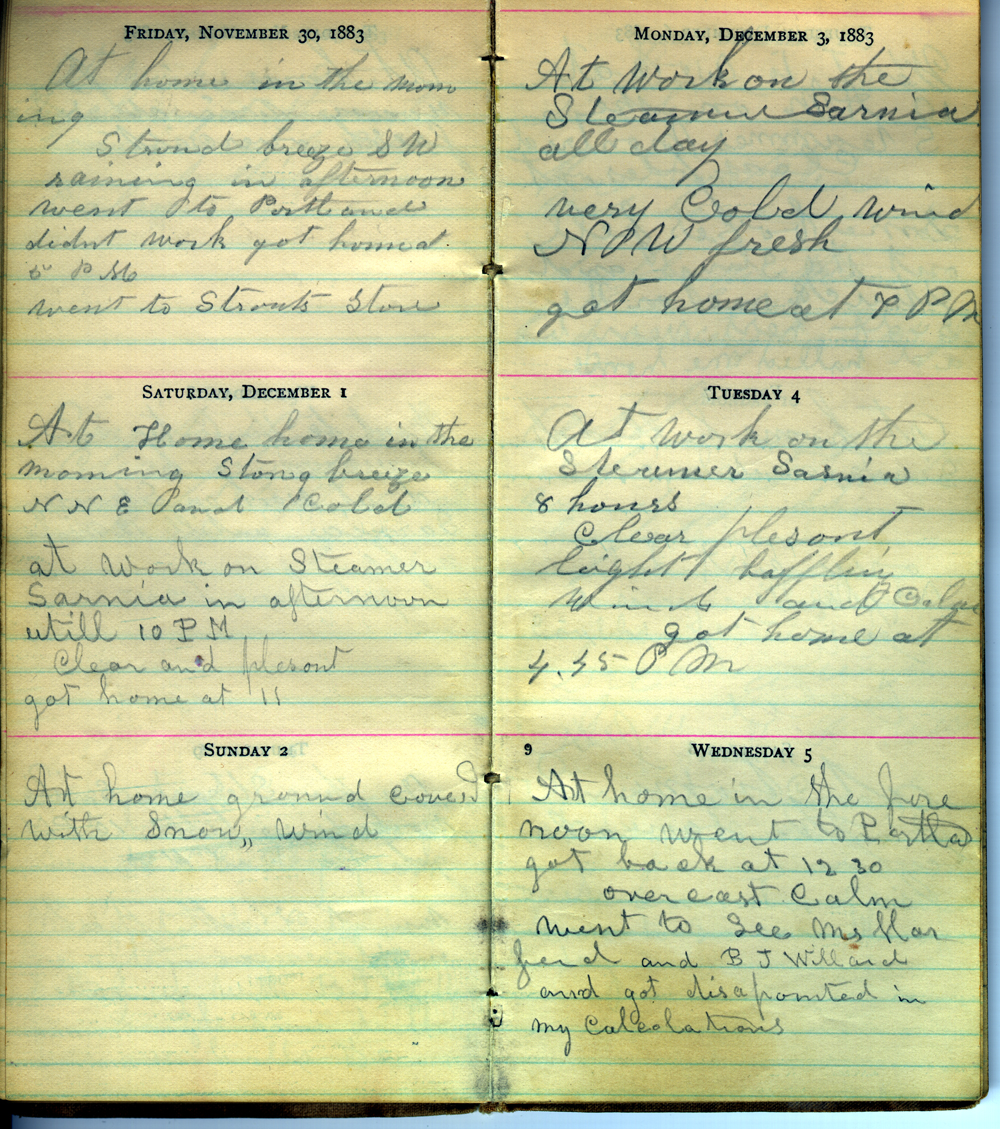 FRIDAY, NOVEMBER 30, 1883
At home in the morn
ing
Strond breeze S W
raining in afternoon
went to Portland
didnt work got home at
5 P M
went to Strouts Store
SATURDAY, DECEMBER 1
At Home home in the
morning Stong breeze
N N E and Cold
at work on Steamer
Sarnia in afternoon
utill 10 P M
Clear and plesont
got home at 11
SUNDAY 2
At home ground coverd
with Snow,, wind
MONDAY, DECEMBER 3, 1883
At work on the
Steamer Sarnia
all day
very Cold wind
N W fresh
got home at 7 P M
TUESDAY 4
At work on the
Steumer Sasnia
8 hours
Clear plesont
light baffling
winds and Calm
got home at
4.45 P M
9
WEDNESDAY 5
At home in the fore
noon went to Portla
got back at 12 30
overcast Calm
went to See Ms Har
ford and B J Willard
and got disapointed in
my Calculations